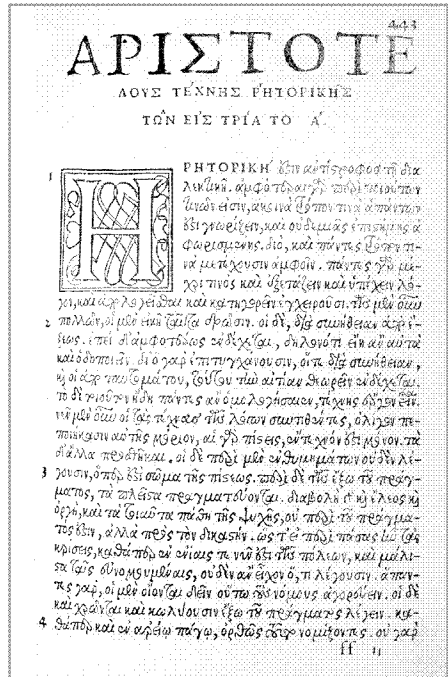 443
ΑΡΙΣΤΟΤΕ
ΛΟΥΣ ΤΕΧΝΗΣ ΡΗΤΟΡΙΚΗΣ
ΤΩ͂Ν ΕΙΣ ΤΡΙΑ ΤΟ Α΄.
1 Η ΡΗΤΟΡΙΚΗ ἐστιν ἀντίστροφος τῇ δια
λεκτικῇ. ἀμφότεραι γὰρ περὶ τοιούτων
τινῶν εἰσιν, ἃ κοινὰ τρόπον τινὰ ἁπάντων
ἐστὶ γνωρίζειν, καὶ οὐδεμιᾶς ἐπιστήμης ἀ
φωρισμένης. διὸ, καὶ πάντες τρόπον τι-
νὰ μετέχουσιν ἀμφοῖν. πάντες γὰρ μέ-
χρι τινὸς καὶ ἐξετάζειν καὶ ὑπέχειν λό-
γον, καὶ ἀπολογεῖσθαι καὶ κατηγορεῖν ἐγχειροῦσι. τῶν μὲν οὖν
2 πολλῶν, οἱ μὲν εἰκῆ ταῦτα δρῶσιν. οἱ δὲ, διὰ συνήθειαν ἀφ' ἕ-
ξεως. ἐπεὶ δ' ἀμφοτέρως ἐνδέχεται, δῆλον ὅτι εἴη ἂν αὐτὰ
καὶ ὁδοποιεῖν. δι' ὃ γὰρ ἐπιτυγχάνουσιν, οἵ τε διὰ συνήθειαν,
καὶ οἱ ἀπὸ ταυτομάτου, τούτου τὴν αἰτίαν θεωρεῖν ἐνδέχεται.
τὸ δὲ τοιοῦτον ἤδη πάντες ἂν ὁμολογήσαιεν, τέχνης ἔργον εἶναι.
νῦν μὲν οὖν οἱ τὰς τέχνας τῶν λόγων συντιθέντες, ὀλίγον πε-
ποιήκασιν αὐτῆς μόριον, αἱ γὰρ πίστεις, ἔντεχνόν ἐστι μόνον. τὰ
δ' ἄλλα προσθῆκαι. οἱ δὲ περὶ μὲν ἐνθυμημάτων οὐδὲν λέ-
3 γουσιν, ὅπερ ἐστὶ σῶμα τῆς πίστεως. περὶ δὲ τῶν ἔξω τοῦ πράγ-
ματος, τὰ πλεῖστα πραγματεύονται. διαβολὴ γὰρ καὶ ἔλεος καὶ
ὀργὴ, καὶ τὰ τοιαῦτα πάθη τῆς ψυχῆς, οὐ περὶ τοῦ πράγμα-
τός ἐστιν, ἀλλὰ πρὸς τὸν δικαστήν. ὥστ' εἰ περὶ πάσας ἦν τὰς
κρίσεις, καθάπερ ἐν ἐνίαις τε νῦν ἐστι τῶν πόλεων, καὶ μάλι-
στα ταῖς εὐνομουμέναις, οὐδὲν ἂν εἶχον ὅ, τι λέγουσιν. ἅπαν-
τες γὰρ, οἱ μὲν οἴονται δεῖν οὕτω τοὺς νόμους ἀγορεύειν. οἱ δὲ
καὶ χρῶνται καὶ κωλύουσιν ἔξω τοῦ πράγματος λέγειν. κα-
4 θάπερ καὶ ἐν ἀρείῳ πάγῳ, ὀρθῶς τοῦτο νομίζοντες. οὐ γὰρ
ff ιι